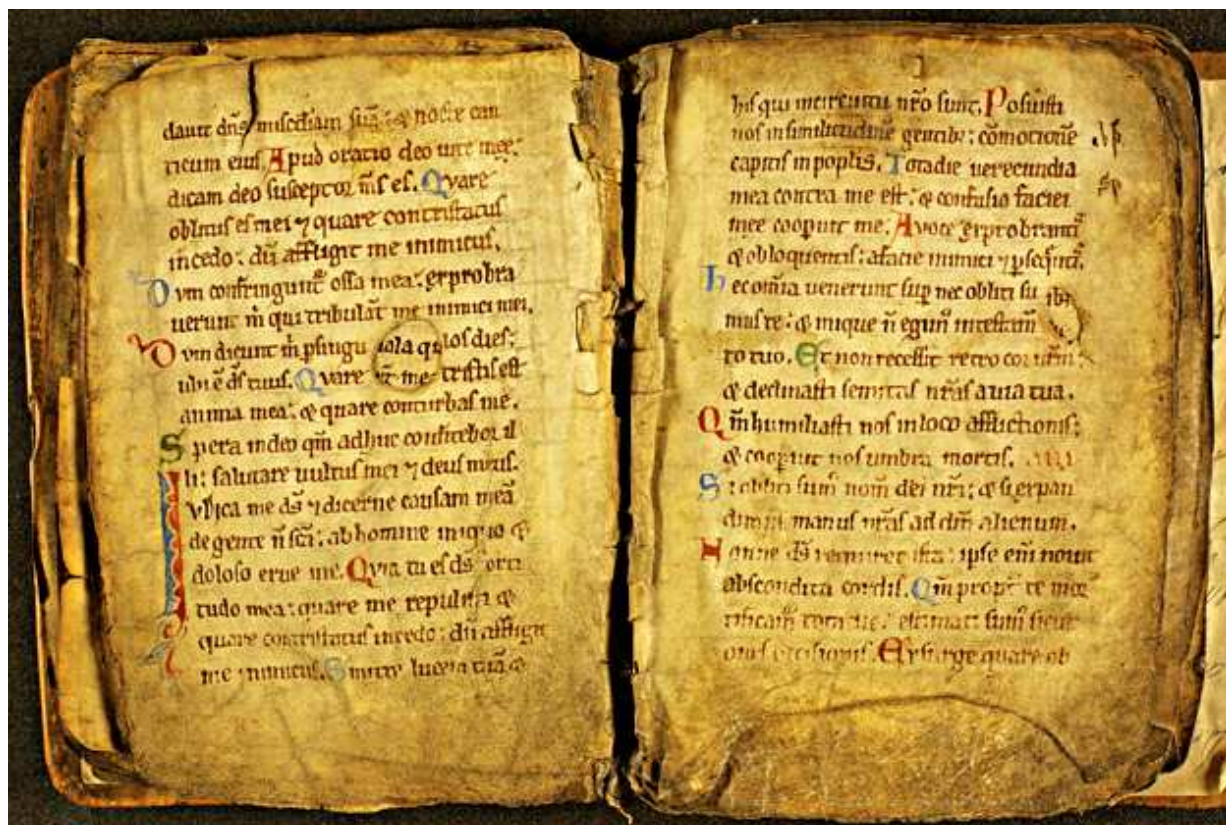 dauit dn̄s misc̄diam suā: & nocte can
ticum eius. Apud me oratio deo uite mee:
dicam deo susceptor m̄s es. Quare
oblitus es mei ⁊ quare contristatus
incedo: dū affligit me inimicus.
Dum confringunt᷑ ossa mea: exproba
uerunt m̄ qui tribulāt me inimici mei.
Dum dicunt m̄ p̱singulos dies:
ubi ē ds̄ tuus. Quare tristis est
anima mea: & quare conturbas me.
Spera in deo qm̄ adhuc confitebor il
li: salutare uultus mei ⁊ deus meus.
Iudica me ds̄ ⁊ discerne causam meā
de gente n̄ sc̄a: ab homine iniquo &
doloso erue me. Quia tu es ds̄ forti
tudo mea: quare me repulisti &
quare contristatus incedo: dū affligit
me inimicus. Emitte lucem tuā &
his qui in circuitu nr̄o sunt. Posuisti
nos in similitudinē gentib;: cōmotionē
capitis in poplis. Tota die uerecundia
mea contra me est: & confusio faciei
mee cooperuit me. A uoce exprobrantis
& obloquentis: a facie inimici ⁊ p̱seq̄ntis.
Hec om̄ia uenerunt sup̱ nec obliti su
mus te: & inique n̄ egim᷒ in testam̄
to tuo. Et non recessit retro cor nr̄m:
& declinasti semitas nr̄as a uia tua.
Qm̄ humiliasti nos in loco afflictionis:
& cooperuit nos umbra mortis.
Si obliti sum᷒ nom̄ dei nr̄i: & si expan
dimus manus nr̄as ad dm̄ alienum.
Nonne ds̄ requiret ista: ipse enī nouit
abscondita cordis. Qm̄ propt̄ te mor
tificam᷒ tota die: estimati sum᷒ sicut
oues occisionis. Exsurge quare ob